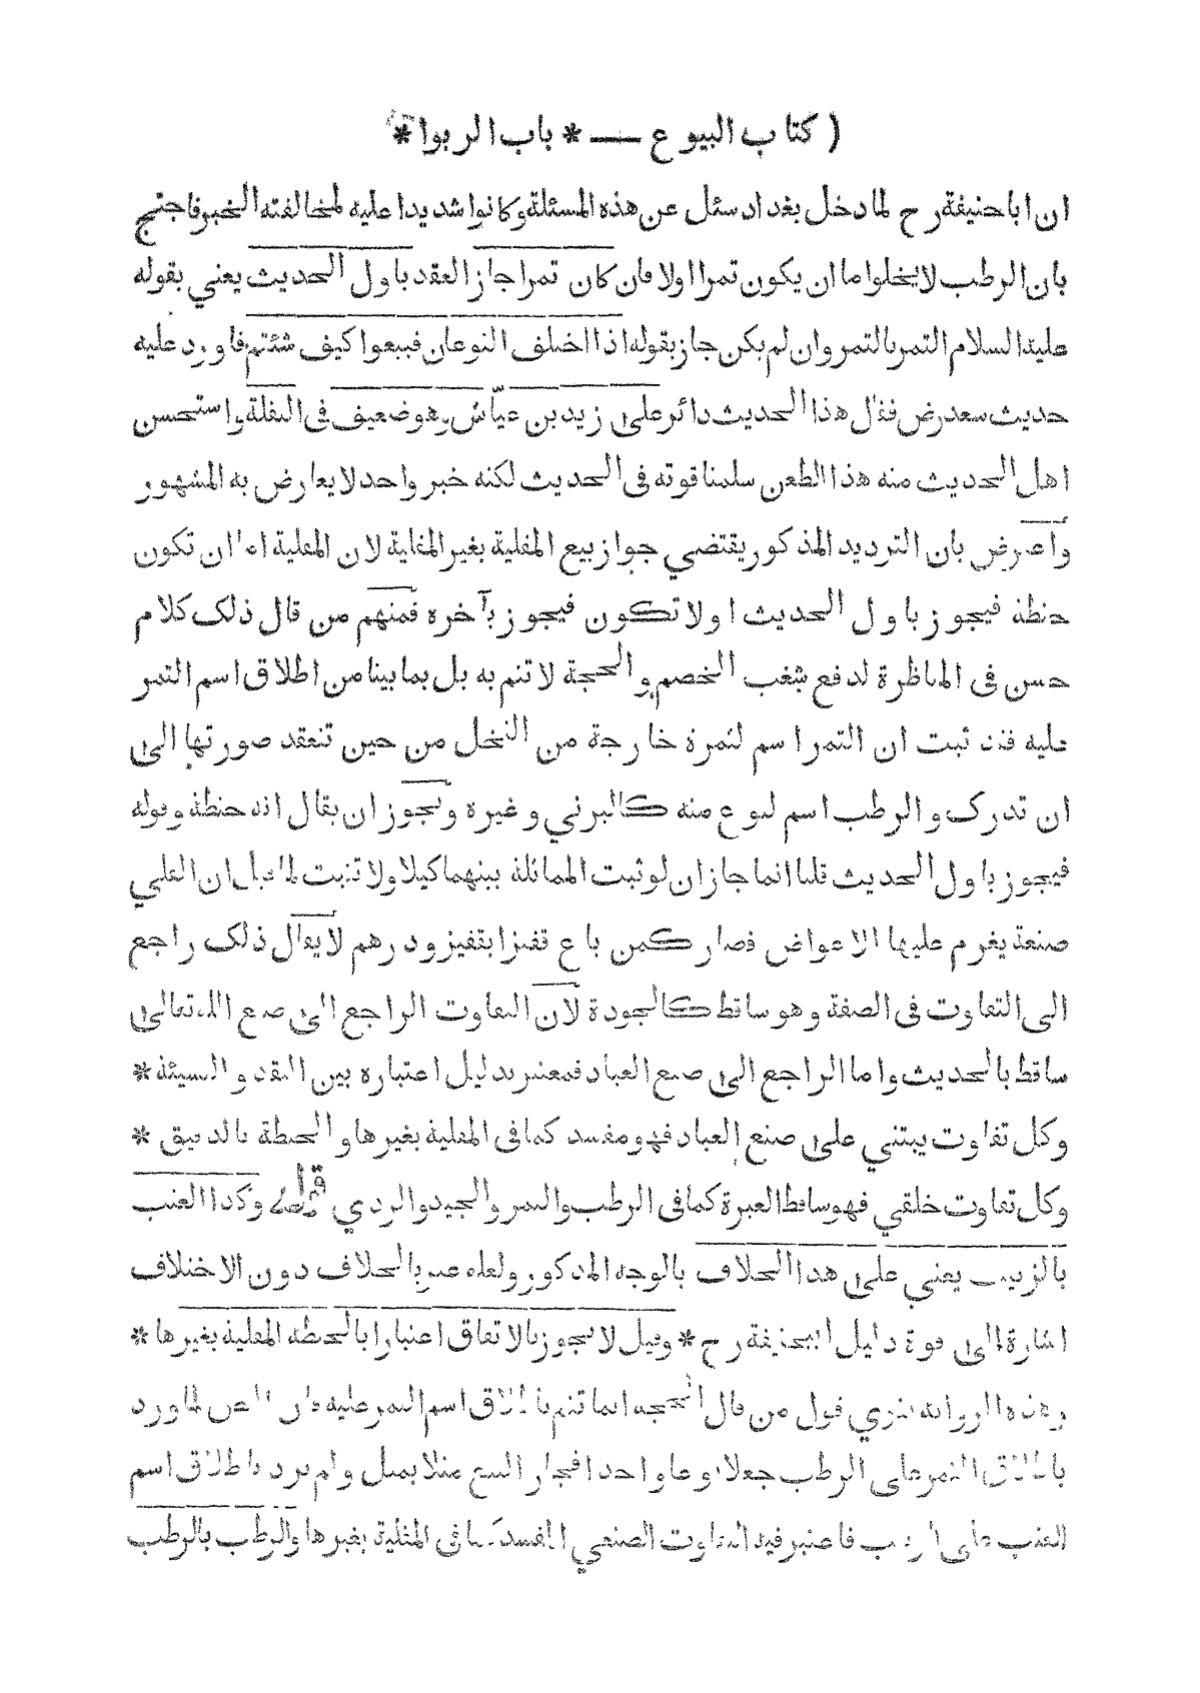 ( كتاب البيوع — * باب الربوا *
ان ابا حنيفة رح لما دخل بغداد سئل عن هذه المسئلة وكانوا شديدا عليه لمخالفته الخبر فاحتج
بان الرطب لا يخلوا ما ان يكون تمرا اولا فان كان تمرا جاز العقد باول الحديث يعني بقوله
عليه السلام التمر بالتمر وان لم يكن جاز بقوله اذا اختلف النوعان فبيعوا كيف شئتم فاورد عليه
حديث سعد رض فقال هذا الحديث دائر على زيد بن عياش وهو ضعيف فى النقلة واستحسن
اهل الحديث منه هذا الطعن سلمنا قوته فى الحديث لكنه خبر واحد لا يعارض به المشهور
واعترض بان الترديد المذكور يقتضي جواز بيع المقلية بغير المقلية لان المقلية اما ان تكون
حنطة فيجوز باول الحديث اولا تكون فيجوز بآخره فمنهم من قال ذلك كلام
حسن فى المناظرة لدفع شغب الخصم والحجة لا تتم به بل بما بينا من اطلاق اسم التمر
عليه فقد ثبت ان التمر اسم لثمرة خارجة من النخل من حين تنعقد صورتها الى
ان تدرك والرطب اسم لنوع منه كالبرني وغيره ويجوز ان يقال انه حنطة وقوله
فيجوز باول الحديث قلنا انما جاز ان لو ثبت المماثلة بينهما كيلا ولا تثبت لما قيل ان القلي
صنعة يغرم عليها الاعواض فصار كمن باع قفيزا بقفيز ودرهم لا يقال ذلك راجع
الى التفاوت فى الصفة وهو ساقط كالجودة لان التفاوت الراجع الى صنع الله تعالى
ساقط بالحديث واما الراجع الى صنع العباد فمعتبر بدليل اعتباره بين النقد والنسيئة *
وكل تفاوت يبتني على صنع العباد فهو مفسد كما فى المقلية بغيرها والحنطة بالدقيق *
وكل تفاوت خلقي فهو ساقط العبرة كما فى الرطب والتمر والجيد والردي قوله وكذا العنب
بالزبيب يعني على هذا الخلاف بالوجه المذكور ولعله عبر بالخلاف دون الاختلاف
اشارة الى قوة دليل ابيحنيفة رح * وقيل لا يجوز بالاتفاق اعتبارا بالحنطة المقلية بغيرها *
وهذه الرواية تقوي قول من قال الحجة انما تتم باطلاق اسم التمر عليه فان النص لما ورد
باطلاق التمر على الرطب جعلا نوعا واحدا فجاز البيع مثلا بمثل ولم يرد باطلاق اسم
العنب على الزبيب فاعتبر فيه التفاوت الصنعي المفسد كما فى المقلية بغيرها والرطب بالرطب